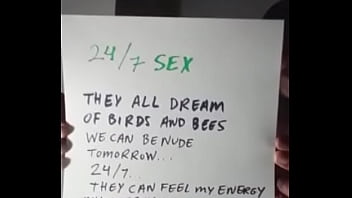 24/7 SEX
THEY ALL DREAM
OF BIRDS AND BEES
WE CAN BE NUDE
TOMORROW...
24/7..
THEY CAN FEEL MY ENERGY